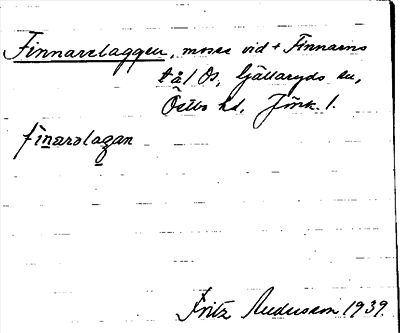 Finnarslaggen, mosse vid + Finnarns
tå l Os, Gällaryds sn,
Östbo hd. Jönk. l.
finarslagan
Fritz Andersson 1939.